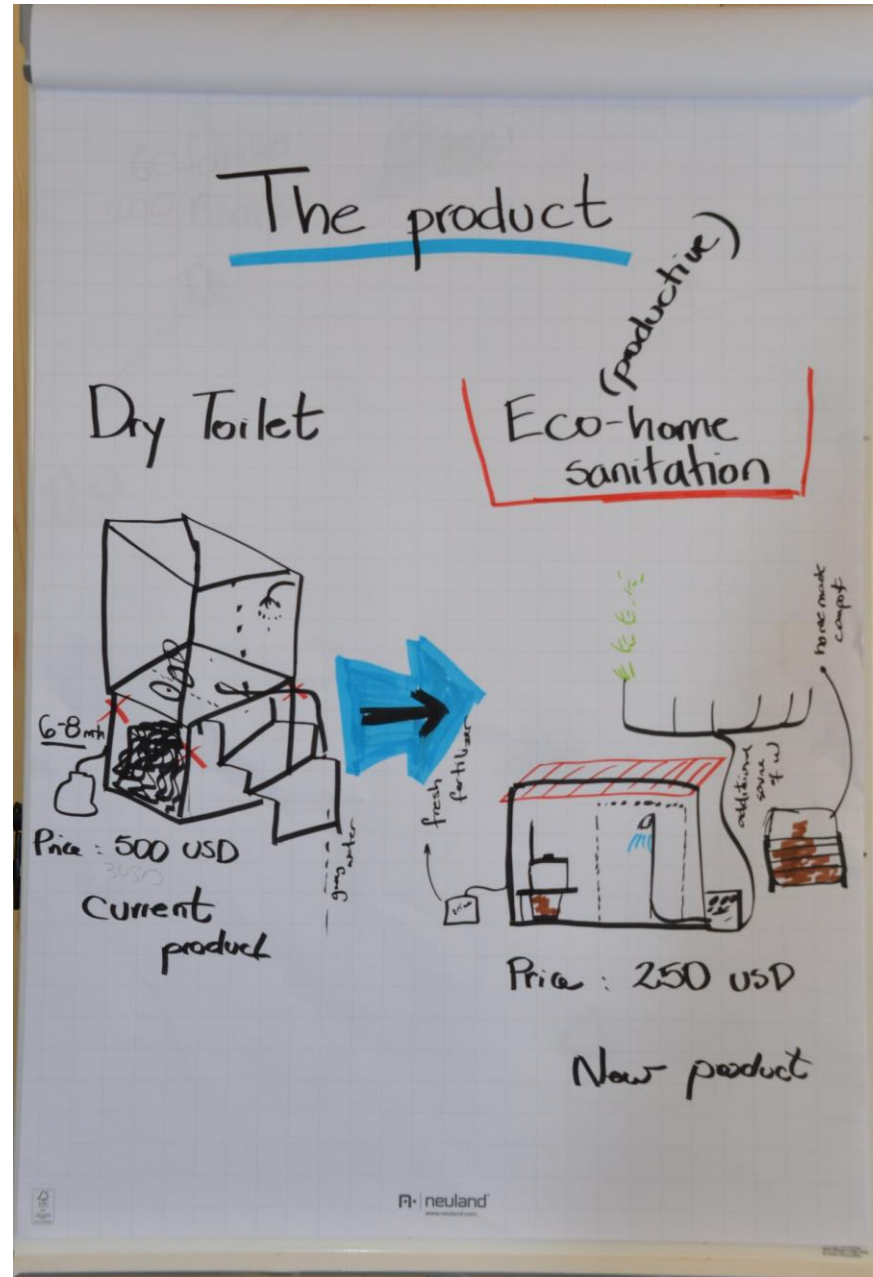 The product
Dry Toilet
(productive)
Eco-home
sanitation
6-8 mth
Price : 500 USD
3USD
grey water
Current
product
fresh
fertilizer
additional
source of w
home made
compost
Price : 250 USD
New product
neuland
www.neuland.com